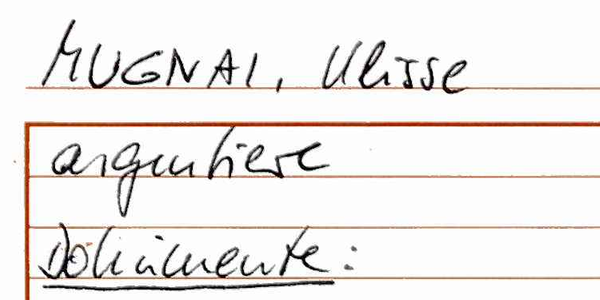 MUGNAI, Ulisse
argentiere
Dokumente: